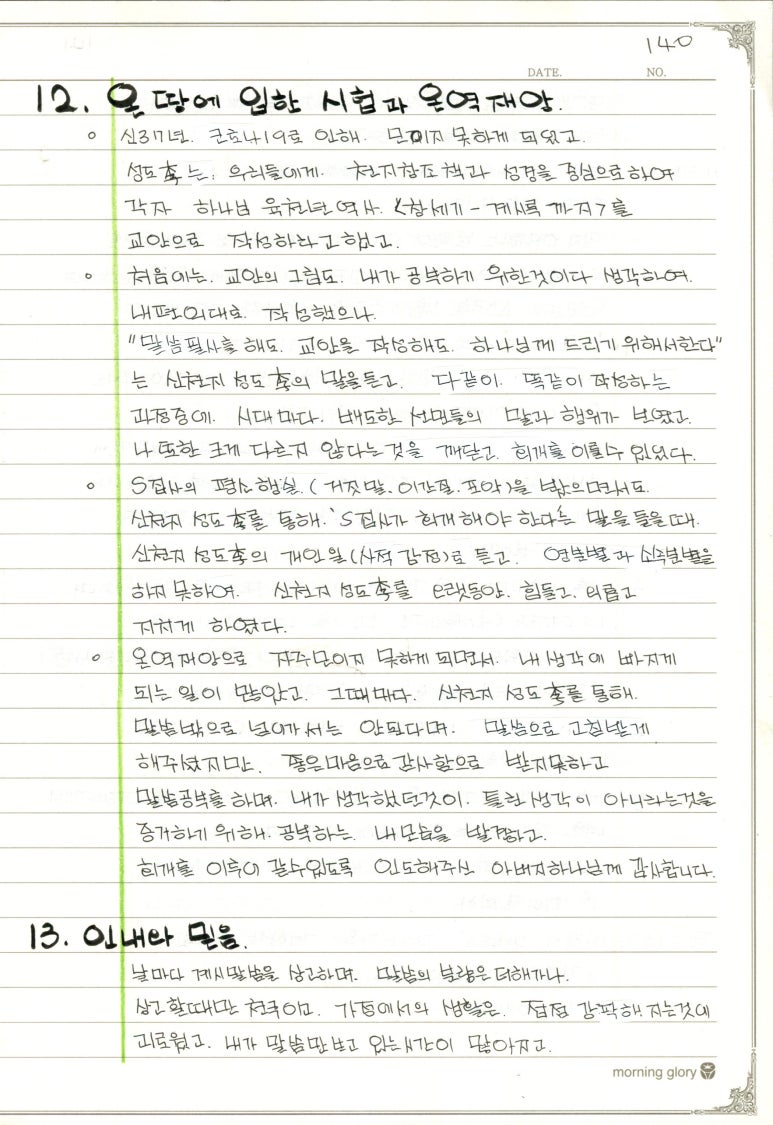 140
DATE. NO.
12. 온 땅에 임한 시험과 온역재앙.
o 신37년. 코로나19로 인해. 모이지 못하게 되었고.
성도李는. 우리들에게. 천지창조 책과 성경을 중심으로하여
각자 하나님 육천년역사. <창세기 - 계시록 까지>를
교안으로 작성하라고 했고.
o 처음에는. 교안의 그림도. 내가 공부하기 위한것이다 생각하여.
내편의대로. 작성했으나.
"말씀필사를 해도. 교안을 작성해도. 하나님께 드리기 위해서한다"
는 신천지 성도李의 말을듣고. 다같이. 똑같이 작성하는
과정중에. 시대마다. 배도한 선민들의 말과 행위가 보였고.
나 또한 크게 다르지 않다는것을 깨닫고. 회개를 이룰수 있었다.
o S집사의 평소행실. (거짓말. 이간질. 포악)을 보았으면서도.
신천지 성도李를 통해. 'S집사가 회개해야 한다'는 말을 들을때.
신천지 성도李의 개인일(사적감정)로 듣고. 영분별과 소주분별을
하지 못하여. 신천지 성도李를 오랫동안. 힘들고. 외롭고
지치게 하였다.
o 온역재앙으로 자주모이지 못하게 되면서. 내 생각에 빠지게
되는 일이 많았고. 그때마다. 신천지 성도李를 통해.
말씀밖으로 넘어가서는 안된다며. 말씀으로 고침받게
해주셨지만. 좋은마음으로 감사함으로 받지못하고
말씀공부를 하며. 내가 생각했던것이. 틀린 생각이 아니라는것을
증거하기 위해. 공부하는. 내모습을 발견하고.
회개를 이루어 갈수있도록 인도해주신 아버지하나님께 감사합니다.
13. 인내와 믿음.
날마다 계시말씀을 상고하며. 말씀의 분량은 더해가나.
상고할때만 천국이고. 가정에서의 생활은. 점점 강팍해 지는것에
괴로웠고. 내가 말씀만보고 있는시간이 많아지고.
morning glory